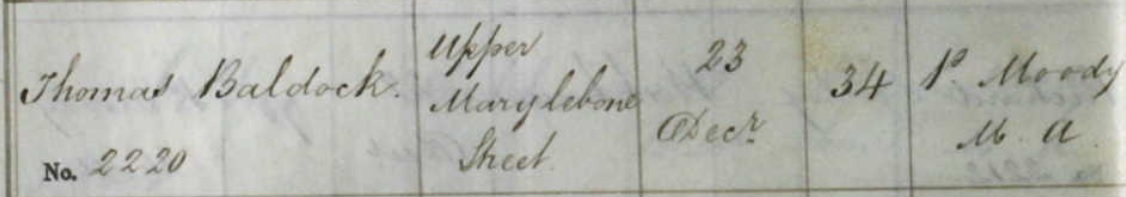 Thomas Baldock.
No. 2220
Upper
Marylebone
Street
23
Decr
34
Moody
M. A